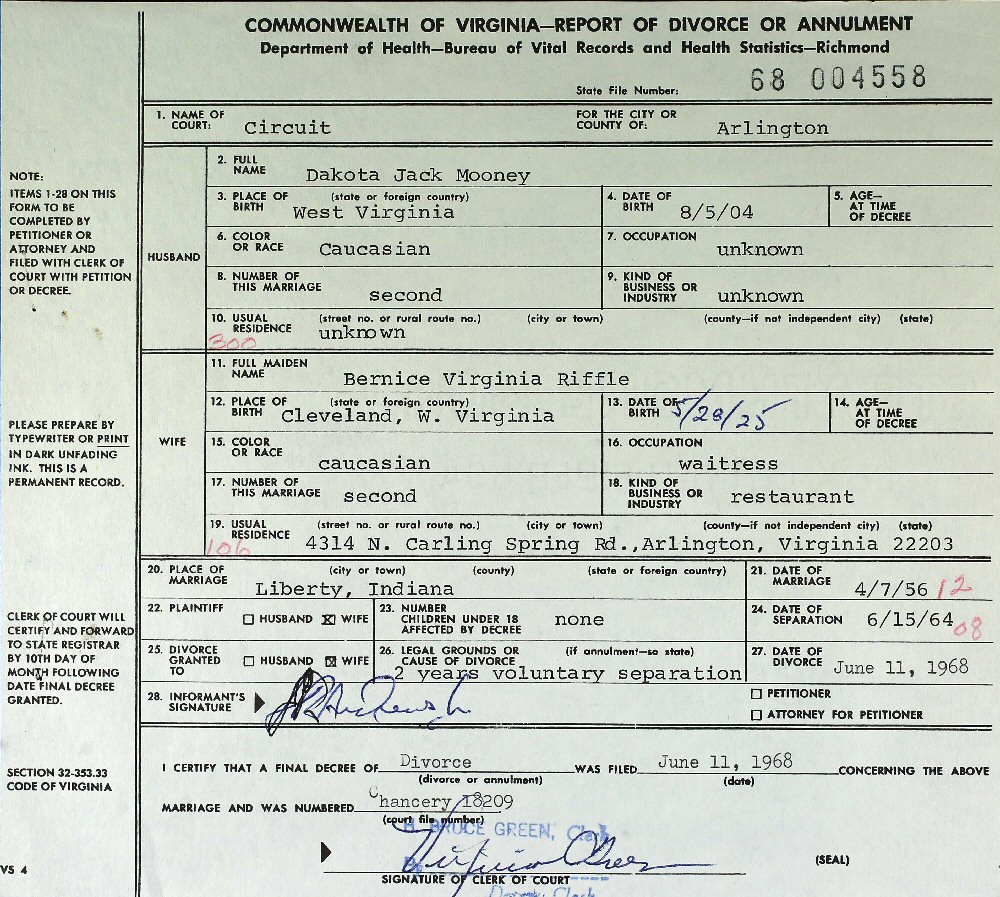 COMMONWEALTH OF VIRGINIA—REPORT OF DIVORCE OR ANNULMENT
Department of Health—Bureau of Vital Records and Health Statistics—Richmond
State File Number: 68 004558
1. NAME OF COURT: Circuit FOR THE CITY OR COUNTY OF: Arlington
NOTE:
ITEMS 1-28 ON THIS
FORM TO BE
COMPLETED BY
PETITIONER OR
ATTORNEY AND
FILED WITH CLERK OF
COURT WITH PETITION
OR DECREE.
HUSBAND
2. FULL NAME Dakota Jack Mooney
3. PLACE OF BIRTH (state or foreign country) West Virginia 4. DATE OF BIRTH 8/5/04 5. AGE— AT TIME OF DECREE
6. COLOR OR RACE Caucasian 7. OCCUPATION unknown
8. NUMBER OF THIS MARRIAGE second 9. KIND OF BUSINESS OR INDUSTRY unknown
10. USUAL RESIDENCE (street no. or rural route no.) (city or town) (county—if not independent city) (state)
300 unknown
PLEASE PREPARE BY
TYPEWRITER OR PRINT
IN DARK UNFADING
INK. THIS IS A
PERMANENT RECORD.
WIFE
11. FULL MAIDEN NAME Bernice Virginia Riffle
12. PLACE OF BIRTH (state or foreign country) Cleveland, W. Virginia 13. DATE OF BIRTH 5/28/25 14. AGE— AT TIME OF DECREE
15. COLOR OR RACE caucasian 16. OCCUPATION waitress
17. NUMBER OF THIS MARRIAGE second 18. KIND OF BUSINESS OR INDUSTRY restaurant
19. USUAL RESIDENCE (street no. or rural route no.) (city or town) (county—if not independent city) (state)
106 4314 N. Carling Spring Rd.,Arlington, Virginia 22203
20. PLACE OF MARRIAGE (city or town) (county) (state or foreign country) Liberty, Indiana 21. DATE OF MARRIAGE 4/7/56 12
CLERK OF COURT WILL
CERTIFY AND FORWARD
TO STATE REGISTRAR
BY 10TH DAY OF
MONTH FOLLOWING
DATE FINAL DECREE
GRANTED.
22. PLAINTIFF HUSBAND X WIFE 23. NUMBER CHILDREN UNDER 18 AFFECTED BY DECREE none 24. DATE OF SEPARATION 6/15/64 08
25. DIVORCE GRANTED TO HUSBAND X WIFE 26. LEGAL GROUNDS OR CAUSE OF DIVORCE (if annulment—so state) 2 years voluntary separation 27. DATE OF DIVORCE June 11, 1968
28. INFORMANT'S SIGNATURE PETITIONER
ATTORNEY FOR PETITIONER
SECTION 32-353.33
CODE OF VIRGINIA
I CERTIFY THAT A FINAL DECREE OF Divorce WAS FILED June 11, 1968 CONCERNING THE ABOVE
(divorce or annulment) (date)
MARRIAGE AND WAS NUMBERED Chancery 18209
(court file number)
H. BRUCE GREEN, Clerk
By
(SEAL)
SIGNATURE OF CLERK OF COURT
Deputy Clerk
VS 4